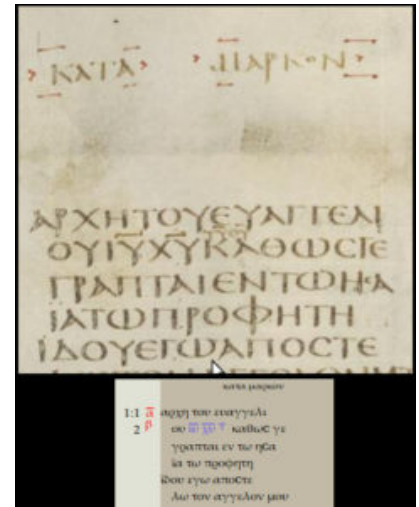 ΚΑΤΑ ΜΑΡΚΟΝ
ΑΡΧΗΤΟΥΕΥΑΓΓΕΛΙ
ΟΥΙΥΧΥΚΑΘΩCΓΕ
ΓΡΑΠΤΑΙΕΝΤΩΗCΑ
ΪΑΤΩΠΡΟΦΗΤΗ
ΪΔΟΥΕΓΩΑΠΟCΤΕ
κατα μαρκον
1:1 αρχη του ευαγγελι
2 ου ιυ χυ καθωc γε
γραπται εν τω ηcα
ϊα τω προφητη
ϊδου εγω αποcτε
λω τον αγγελον μου